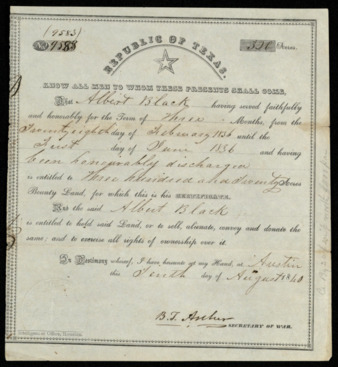 (9583)
No. 9588
320 Acres.
REPUBLIC OF TEXAS.
KNOW ALL MEN TO WHOM THESE PRESENTS SHALL COME,
That Albert Black having served faithfully
and honorably for the Term of Three Months, from the
Twenty eighth day of February 1836 until the
First day of June 1836 and having
been honorably discharged
is entitled to Three hundred and twenty Acres
Bounty Land, for which this is his CERTIFICATE.
And the said Albert Black
is entitled to hold said Land, or to sell, alienate, convey and donate the
same; and to exercise all rights of ownership over it.
In Testimony whereof, I have hereunto set my Hand, at Austin
this Tenth day of August 1840
B. T. Archer
SECRETARY OF WAR.